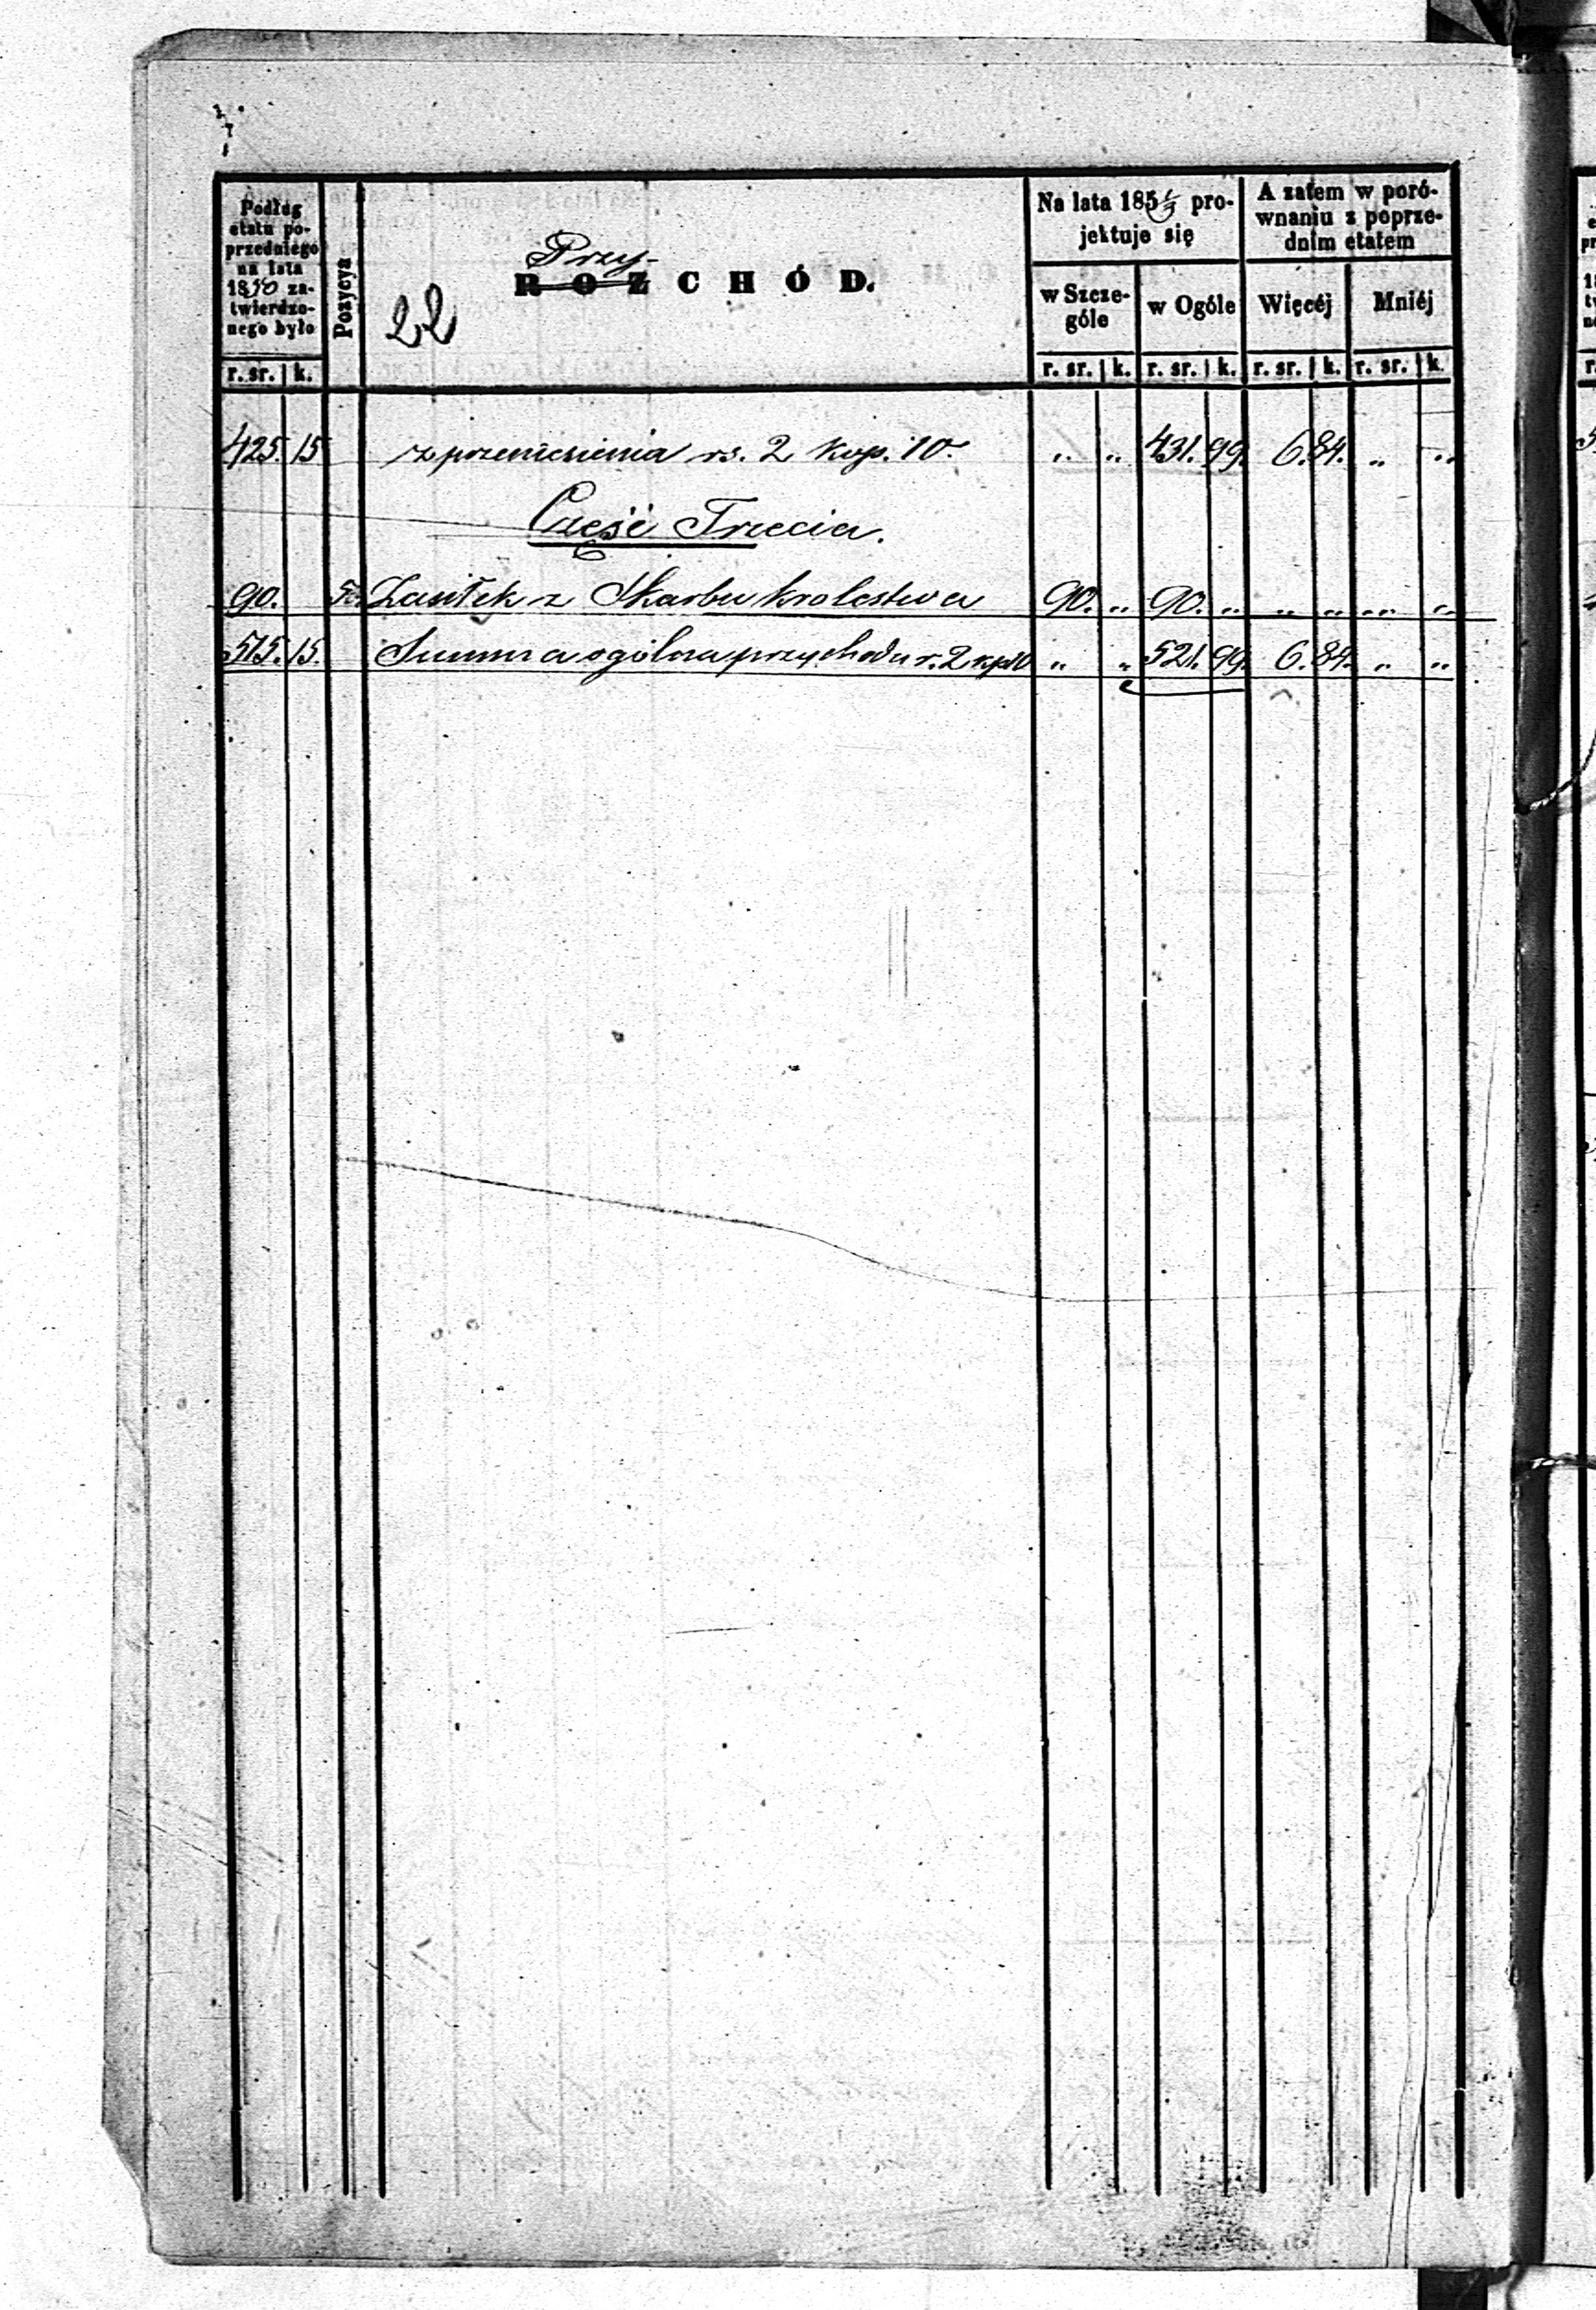 Podług
etatu po-
przedniego
na lata
1850 za-
twierdzo-
nego było
r. sr. k.
Pozycya
22
Przy-
R O Z C H Ó D.
Na lata 185 pro-
jektuje się
w Szcze-
góle
w Ogóle
r. sr. k. r. sr. k.
A zatem w poró-
wnaniu z poprze-
dnim etatem
Więcéj
Mniéj
r. sr. k. r. sr. k.
425. 15 z przeniesienia rs. 2 kop. 10. „ „ 431. 99. 6. 84. „ „
Część Trzecia.
90. 5. Zasiłek z Skarbu Krolestwa 90. „ 90. „ „ „ „ „
515. 15. Summa ogólna przychodu r. 2 kp 10 „ „ 521. 99. 6. 84. „ „